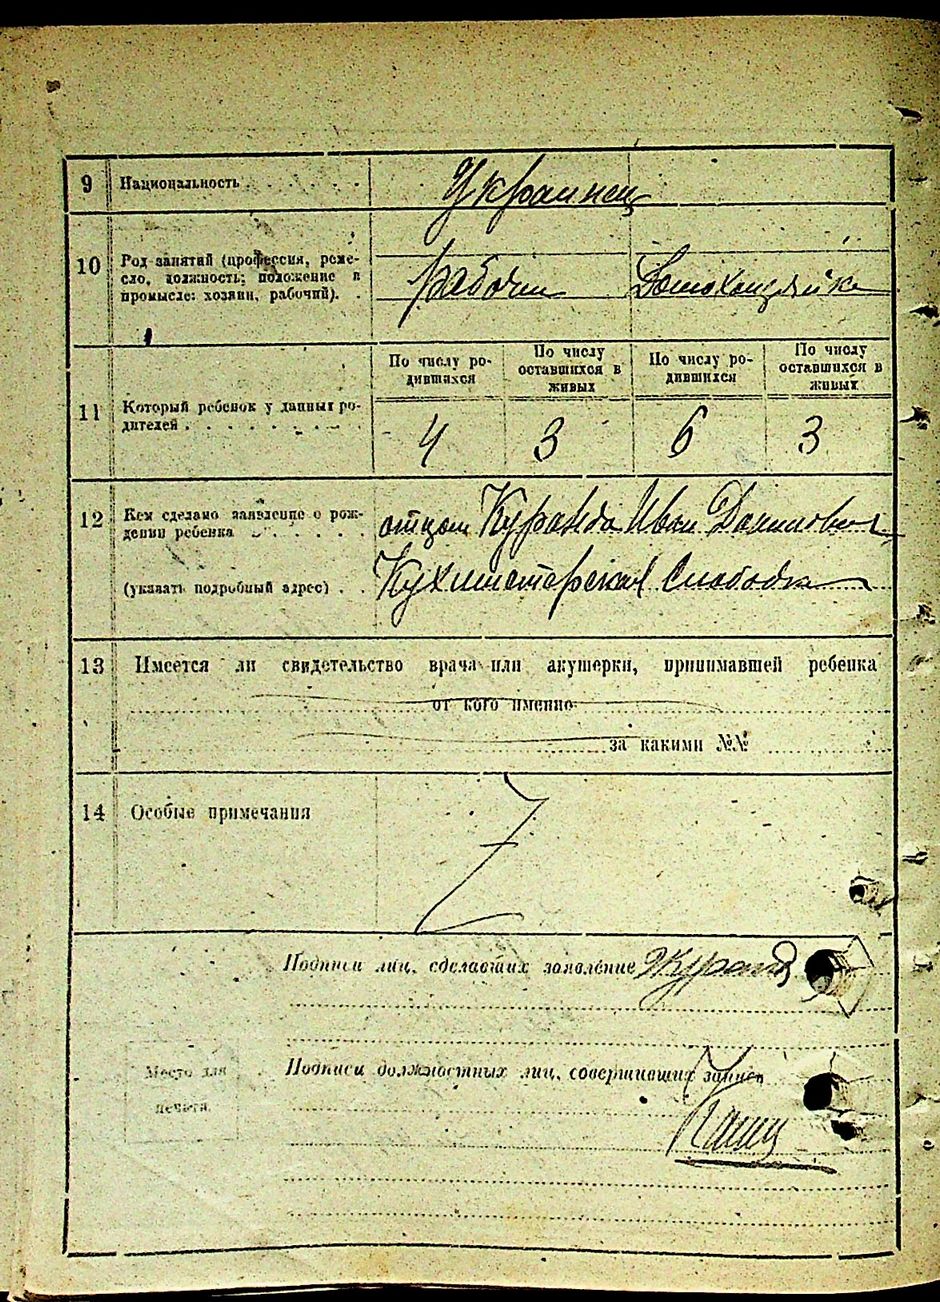 9 Национальность . . . . . . . Украинец
10 Род занятий (профессия, реме-
сло, должность; положение в
промысле: хозяин, рабочий). . рабочий Домохозяйка
По числу ро-
дившихся
По числу
оставшихся в
живых
По числу ро-
дившихся
По числу
оставшихся в
живых
11 Который ребенок у данных ро-
дителей . . . . . . . . . . 4 3 6 3
12 Кем сделано заявление о рож-
дении ребенка . . . . . . . отцом Куранда Иван Данилович
(указать подробный адрес) . . Кухмистерская Слободка
13 Имеется ли свидетельство врача или акушерки, принимавшей ребенка
от кого именно
за какими №№
14 Особые примечания
Подписи лиц, сделавших заявление
Место для
печати.
Подписи должностных лиц, совершивших запись